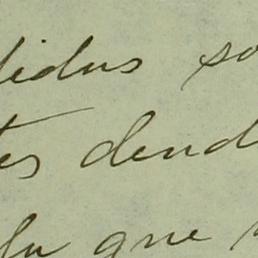 didus so
tes dend
fu que